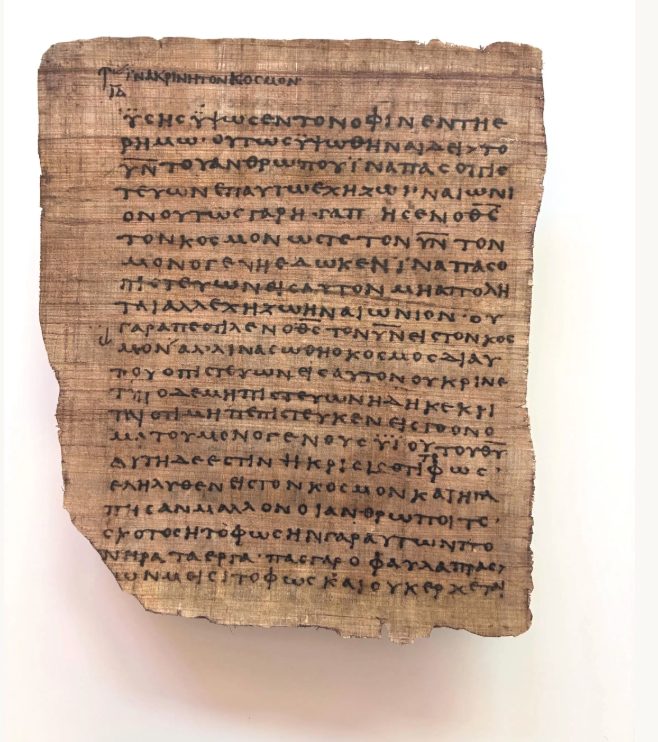 ΪΝΑΚΡΙΝΗΤΟΝΚΟϹΜΟΝ
ΙΔ
ΫϹΗϹΫΨΩϹΕΝΤΟΝΟΦΙΝΕΝΤΗΕ
ΡΗΜΩ·ΟΥΤΩϹΫΨΩΘΗΝΑΙΔΕΙΤΟ
Υ̅Ν̅ΤΟΥΑΝΘΡΩΠΟΥΪΝΑΠΑϹΟΠΙϹ
ΤΕΥΩΝΕΠΑΥΤΩΕΧΗΖΩΗΝΑΙΩΝΙ
ΟΝΟΥΤΩϹΓΑΡΗΓΑΠΗϹΕΝΟΘ̅Ϲ̅
ΤΟΝΚΟϹΜΟΝΩϹΤΕΤΟΝΥ̅Ν̅ΤΟΝ
ΜΟΝΟΓΕΝΗΕΔΩΚΕΝΪΝΑΠΑϹΟ
ΠΙϹΤΕΥΩΝΕΙϹΑΥΤΟΝΜΗΑΠΟΛΗ
ΤΑΙΑΛΛΕΧΗΖΩΗΝΑΙΩΝΙΟΝ·ΟΥ
ΓΑΡΑΠΕϹΤΙΛΕΝΟΘ̅Ϲ̅ΤΟΝΥ̅Ν̅ΕΙϹΤΟΝΚΟϹ
ΜΟΝΑΛΛΙΝΑϹΩΘΗΟΚΟϹΜΟϹΔΙΑΥ
ΤΟΥΟΠΙϹΤΕΥΩΝΕΙϹΑΥΤΟΝΟΥΚΡΙΝΕ
ΤΑΙΟΔΕΜΗΠΙϹΤΕΥΩΝΗΔΗΚΕΚΡΙ
ΤΑΙΟΤΙΜΗΠΕΠΙϹΤΕΥΚΕΝΕΙϹΤΟΟΝΟ
ΜΑΤΟΥΜΟΝΟΓΕΝΟΥϹΫΙΟΥΤΟΥΘ̅Υ̅
ΑΥΤΗΔΕΕϹΤΙΝΗΚΡΙϹΙϹΟΤΙΤΟΦΩϹ·
ΕΛΗΛΥΘΕΝΕΙϹΤΟΝΚΟϹΜΟΝΚΑΙΗΓΑ
ΠΗϹΑΝΜΑΛΛΟΝΟΙΑΝΘΡΩΠΟΙΤΟ
ϹΚΟΤΟϹΗΤΟΦΩϹΗΝΓΑΡΑΥΤΩΝΠΟ
ΝΗΡΑΤΑΕΡΓΑ·ΠΑϹΓΑΡΟΦΑΥΛΑΠΡΑϹ
ΩΝΜΕΙϹΙΤΟΦΩϹΚΑΙΟΥΚΕΡΧΕΤΑΙ